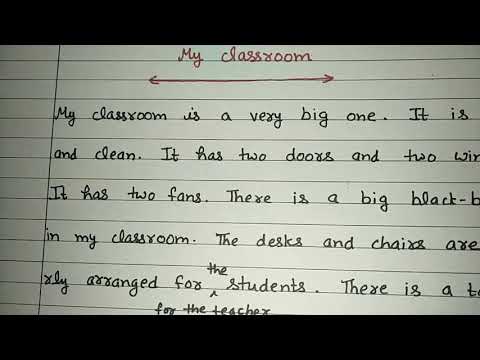 My classroom
My classroom is a very big one. It is
and clean. It has two doors and two win
It has two fans. There is a big black-b
in my classroom. The desks and chairs are
the
rly arranged for ^ students. There is a ta
for the teacher